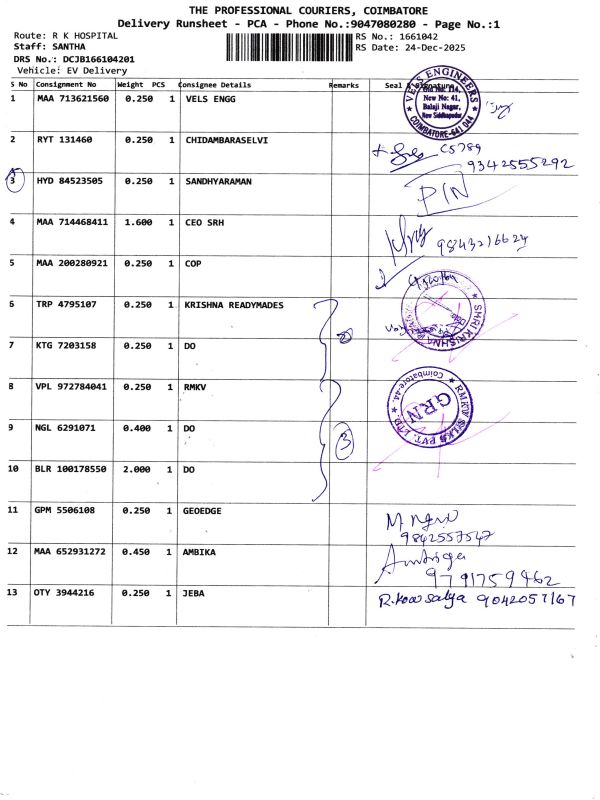 THE PROFESSIONAL COURIERS, COIMBATORE
Delivery Runsheet - PCA - Phone No.:9047080280 - Page No.:1
Route: R K HOSPITAL RS No.: 1661042
Staff: SANTHA RS Date: 24-Dec-2025
DRS No.: DCJB166104201
Vehicle: EV Delivery
S No Consignment No Weight PCS Consignee Details Remarks Seal & Signature
1 MAA 713621560 0.250 1 VELS ENGG
VELS ENGINEERS
New No: 41,
Balaji Nagar,
New Siddhapudur,
COIMBATORE-641 044
2 RYT 131460 0.250 1 CHIDAMBARASELVI C5789
9342555292
3 HYD 84523505 0.250 1 SANDHYARAMAN PIN
4 MAA 714468411 1.600 1 CEO SRH 9843216624
5 MAA 200280921 0.250 1 COP
6 TRP 4795107 0.250 1 KRISHNA READYMADES
SHRI KRISHNA
7 KTG 7203158 0.250 1 DO
8 VPL 972784041 0.250 1 RMKV
RMKV SILKS PVT. LTD.
GRN
Coimbatore-44.
9 NGL 6291071 0.400 1 DO 3
10 BLR 100178550 2.000 1 DO
11 GPM 5506108 0.250 1 GEOEDGE
9842557547
12 MAA 652931272 0.450 1 AMBIKA Ambiga
9791759462
13 OTY 3944216 0.250 1 JEBA R.kowsalya 9042057167